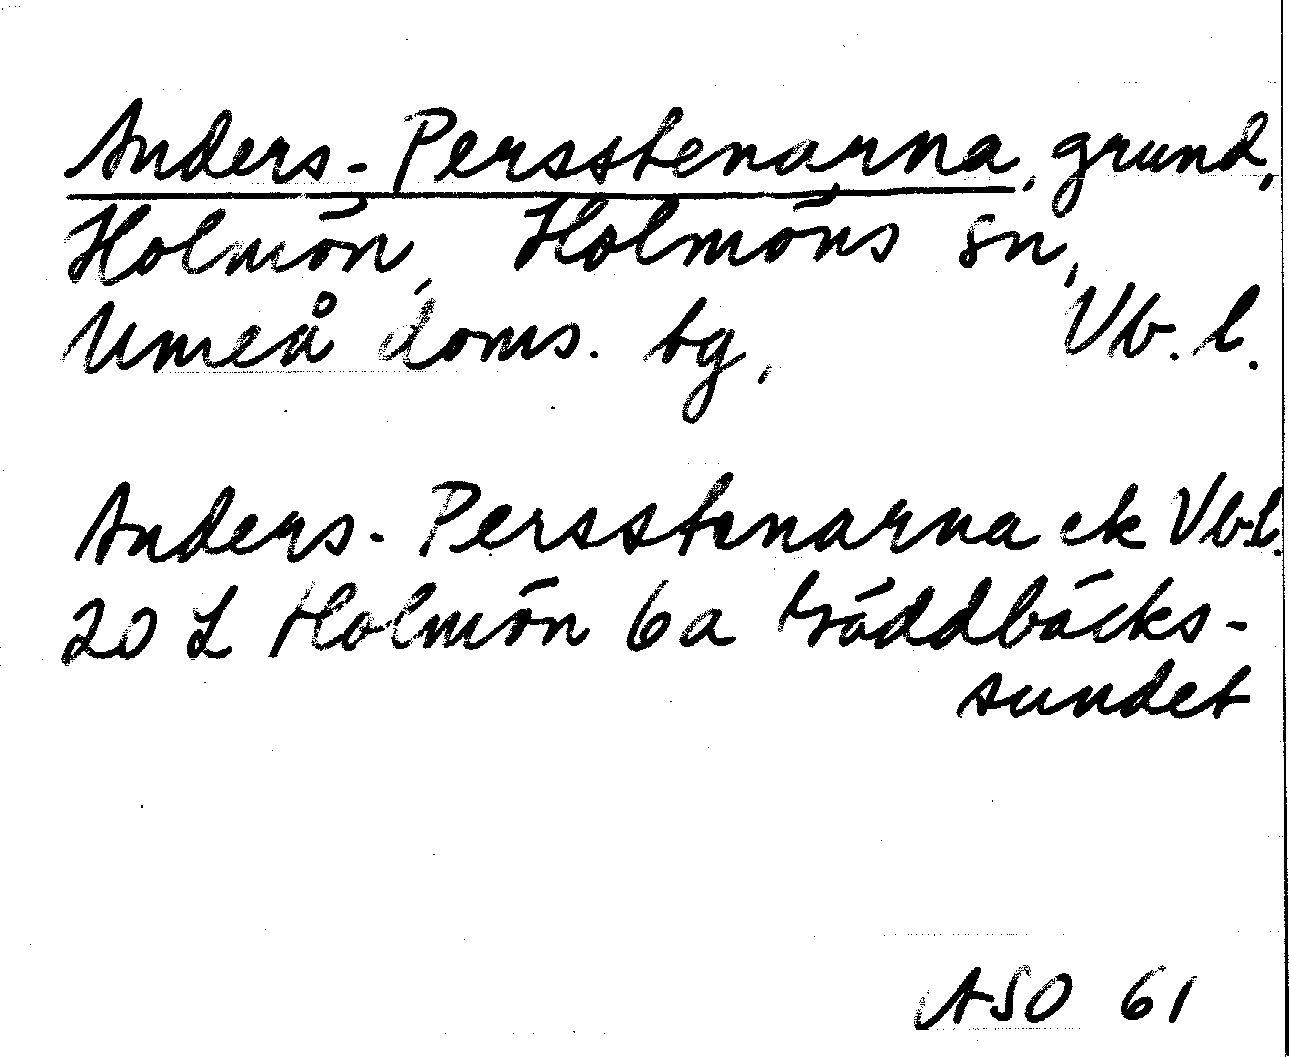 Anders-Persstenarna, grund,
Holmön, Holmöns sn,
Umeå doms. tg, Vb. l.
Anders-Persstenarna ek Vb.l.
20 L Holmön 6a träddbäcks-
sundet
ASO 61